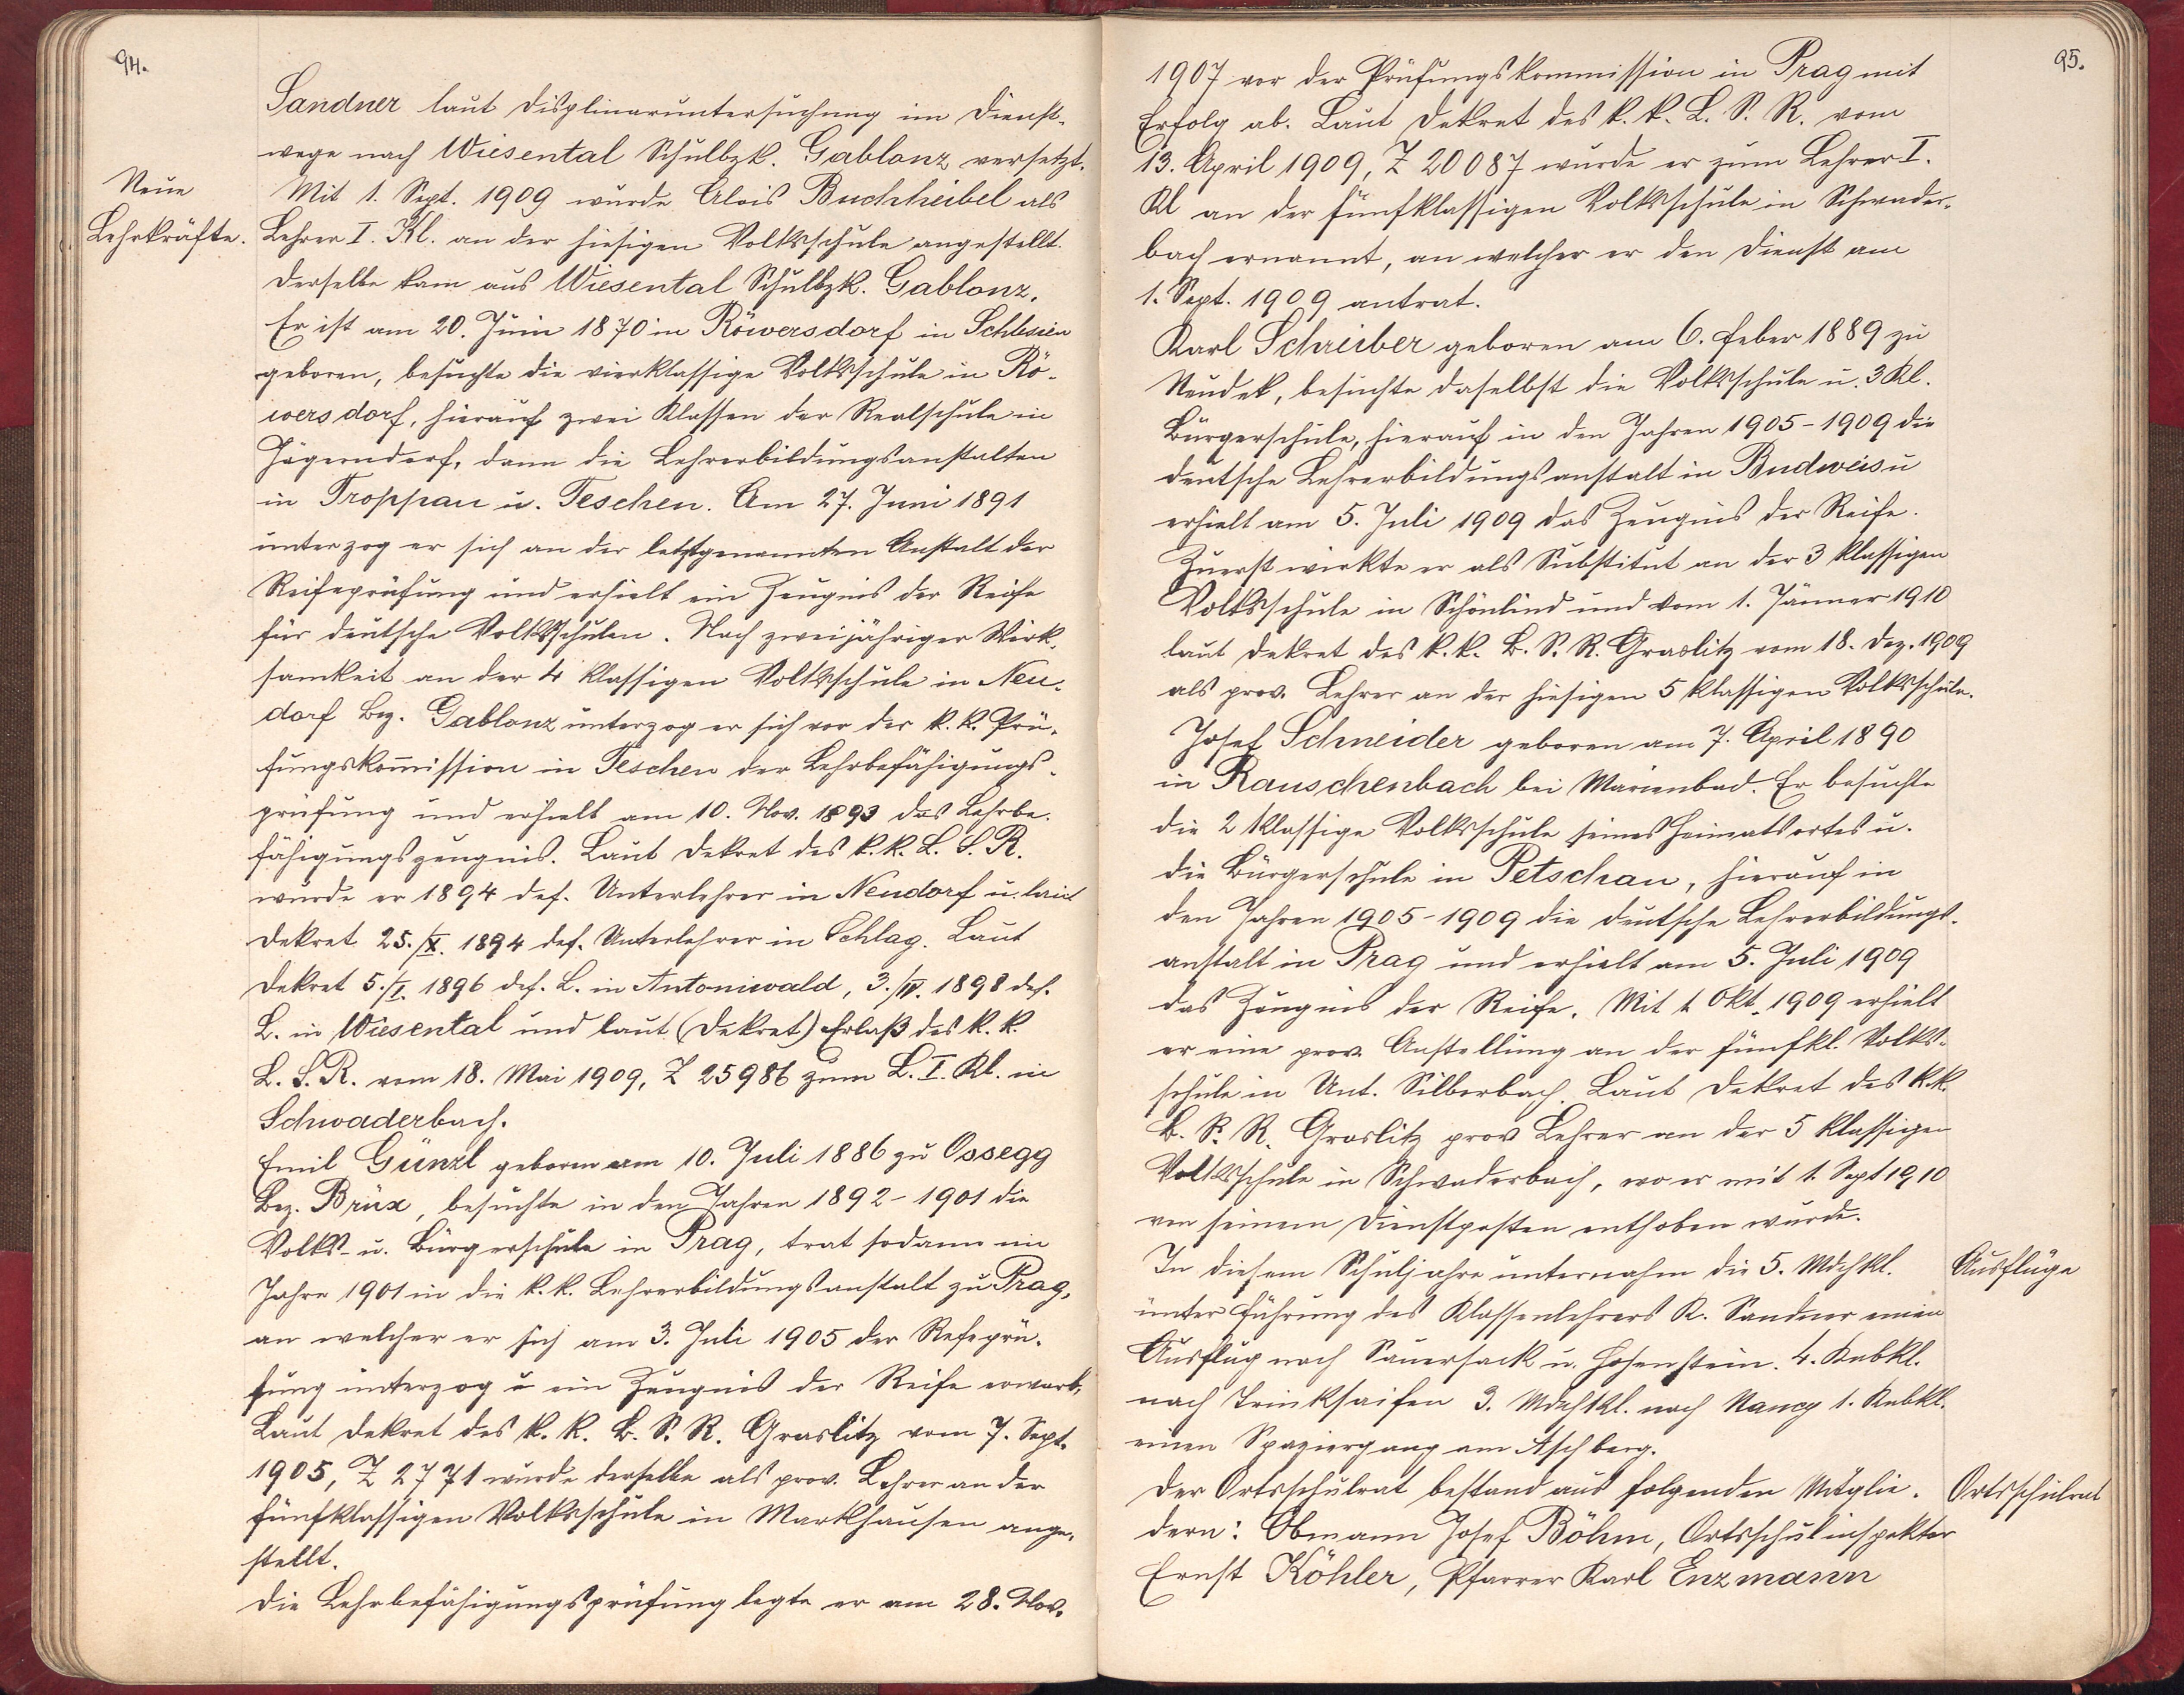 94.
Sandner laut Displinaruntersuchung im Dienst-
wege nach Wiesental Schulbzk. Gablonz versetzt.
Neue
Lehrkräfte.
Mit 1. Sept. 1909 wurde Alois Buchheibel als
Lehrer I. Kl. an der hiesigen Volksschule angestellt.
Derselbe kam aus Wiesental Schulbzk. Gablonz.
Er ist am 20. Juni 1870 in Röwersdorf in Schlesien
geboren, besuchte die vierklassige Volksschule in Rö-
wersdorf, hierauf zwei Klassen der Realschule in
Jägerndorf, dann die Lehrerbildungsanstalten
in Troppau u. Teschen. Am 27. Juni 1891
unterzog er sich an der letztgenannten Anstalt der
Reifeprüfung und erhielt ein Zeugnis der Reife
für deutsche Volksschulen. Nach zweijähriger Wirk-
samkeit an der 4 klassigen Volksschule in Neu-
dorf Bez. Gablonz unterzog er sich vor der k.k. Prü-
fungskommission in Teschen der Lehrbefähigungs-
prüfung und erhielt am 10. Nov. 1893 das Lehrbe-
fähigungszeugnis. Laut Dekret des k.k. L. S. R.
wurde er 1894 def. Unterlehrer in Neudorf u. laut
Dekret 25./X. 1894 def. Unterlehrer in Schlag. Laut
Dekret 5./I. 1896 def. L. in Antoniwald, 3./IV. 1898 def.
L. in Wiesental und laut (Dekret) Erlaß des k.k.
L. S. R. vom 18. Mai 1909, Z 25986 zum L. I. Kl. in
Schwaderbach.
Emil Günzl geboren am 10. Juli 1886 zu Ossegg
Bez. Brüx, besuchte in den Jahren 1892-1901 die
Volks- u. Bürgerschule in Prag, trat sodann im
Jahre 1901 in die k.k. Lehrerbildungsanstalt zu Prag,
an welcher er sich am 3. Juli 1905 der Refeprü-
fung unterzog u ein Zeugnis der Reife erwarb.
Laut Dekret des k. k. B. S. R. Graslitz vom 7. Sept.
1905, Z 2771 wurde derselbe als prov. Lehrer an der
fünfklassigen Volksschule in Markhausen ange-
stellt.
Die Lehrbefähigungsprüfung legte er am 28. Nov.
95.
1907 vor der Prüfungskommission in Prag mit
Erfolg ab. Laut Dekret des k. k. L. S. R. vom
13. April 1909, Z 20087 wurde er zum Lehrer I.
Kl an der fünfklassigen Volksschule in Schwader-
bach ernannt, an welcher er den Dienst am
1. Sept. 1909 antrat.
Karl Schreiber geboren am 6. Feber 1889 zu
Neudek, besuchte daselbst die Volksschule u. 3 Kl.
Bürgerschule, hierauf in den Jahren 1905-1909 die
deutsche Lehrerbildungsanstalt in Budweis u
erhielt am 5. Juli 1909 das Zeugnis der Reife.
Zuerst wirkte er als Substitut an der 3 klassigen
Volksschule in Schönlind und vom 1. Jänner 1910
laut Dekret des k. k. B. S. R. Graslitz vom 18. Dez. 1909
als prov. Lehrer an der hiesigen 5 klassigen Volksschule.
Josef Schneider geboren am 7. April 1890
in Rauschenbach bei Marienbad. Er besuchte
die 2 klassige Volksschule seines Heimatsortes u.
die Bürgerschule in Petschau, hierauf in
den Jahren 1905-1909 die deutsche Lehrerbildungs-
anstalt in Prag und erhielt am 5. Juli 1909
das Zeugnis der Reife. Mit 1. Okt. 1909 erhielt
er eine prov. Anstellung an der fünfkl. Volks-
schule in Unt. Silberbach. Laut Dekret des k.k.
B. S. R. Graslitz prov Lehrer an der 5 klassigen
Volksschule in Schwaderbach, wo er mit 1. Sept 1910
von seinem Dienstposten enthoben wurde.
Ausflüge
In diesem Schuljahre unternahm die 5. Mdchkl.
unter Führung des Klassenlehrers R. Sandner einen
Ausflug nach Sauersack u. Hohenstein. 4. Knbkl.
nach Trinksaifen 3. Mdchkl. nach Nancy 1. Knbkl.
einen Spaziergang am Aschberg.
Ortsschulrat
Der Ortsschulrat bestand aus folgenden Mitglie-
dern: Obmann Josef Böhm, Ortsschulinspektor
Ernst Köhler, Pfarrer Karl Enzmann